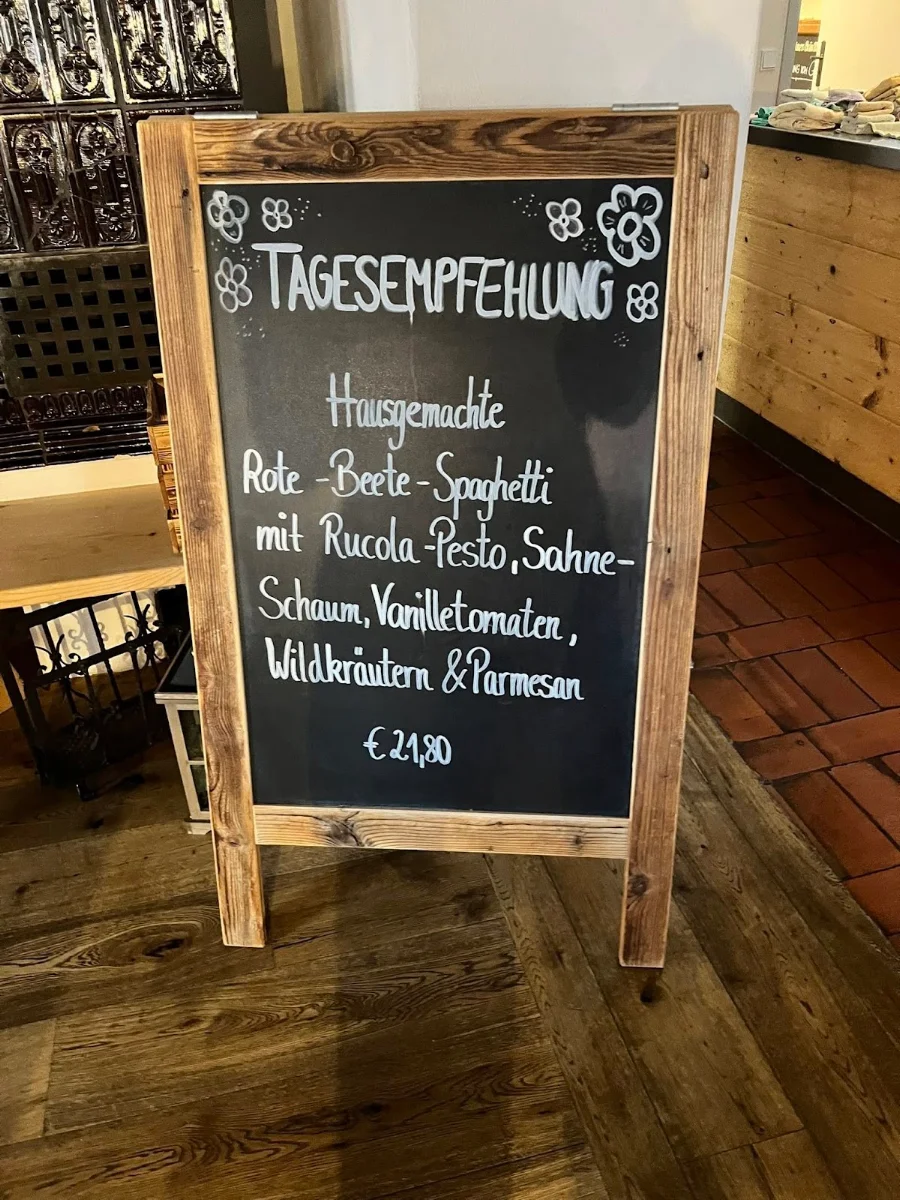 TAGESEMPFEHLUNG
Hausgemachte
Rote-Beete-Spaghetti
mit Rucola-Pesto, Sahne-
Schaum, Vanilletomaten,
Wildkräutern & Parmesan
€ 21,80